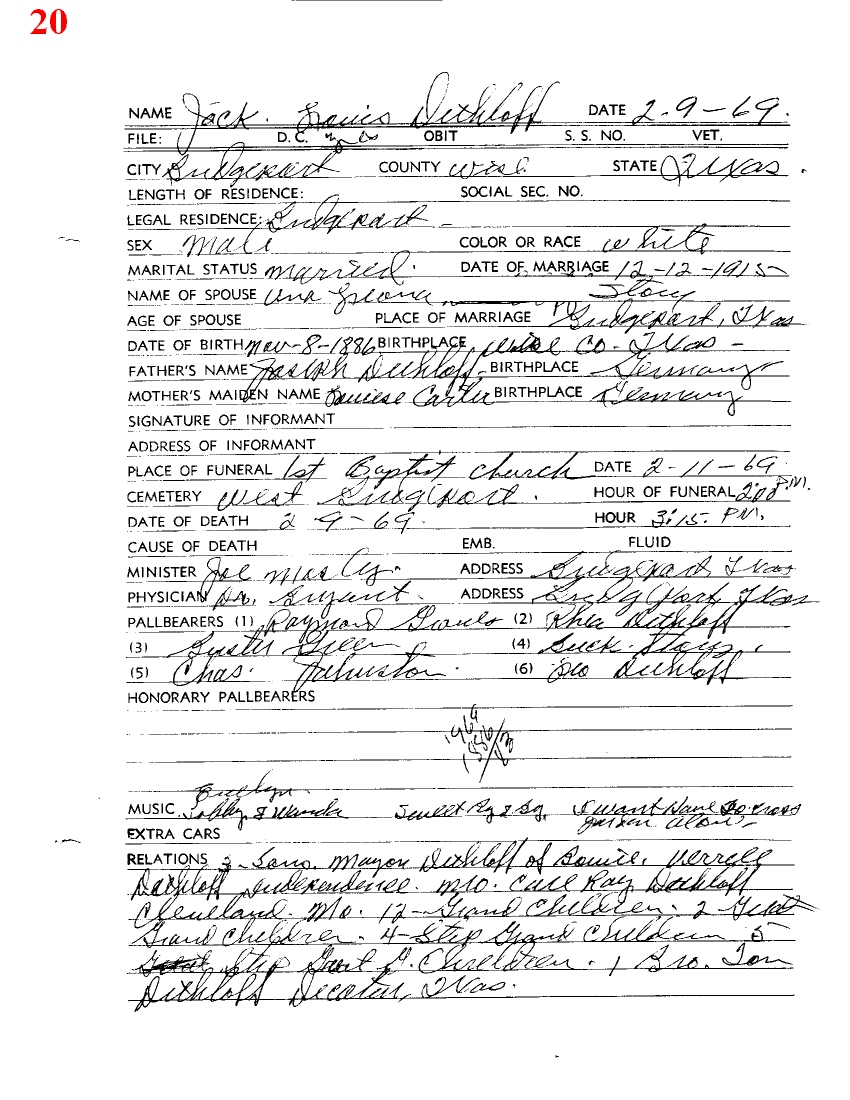 20
NAME Jack. Travis Dethloff DATE 2-9-69.
FILE: D.C. OBIT S. S. NO. VET.
CITY Bridgeport COUNTY Wise STATE Texas.
LENGTH OF RESIDENCE: SOCIAL SEC. NO.
LEGAL RESIDENCE: Bridgeport -
SEX Male COLOR OR RACE White
MARITAL STATUS married. DATE OF MARRIAGE 12-12-1915
NAME OF SPOUSE Story
AGE OF SPOUSE PLACE OF MARRIAGE Bridgeport, Texas
DATE OF BIRTH Nov-8-1886 BIRTHPLACE Wise Co. Texas -
FATHER'S NAME Joseph Dethloff - BIRTHPLACE Germany
MOTHER'S MAIDEN NAME Louiese Carter BIRTHPLACE Germany
SIGNATURE OF INFORMANT
ADDRESS OF INFORMANT
PLACE OF FUNERAL 1st Baptist church DATE 2-11-69
CEMETERY West Bridgeport. HOUR OF FUNERAL 2:00 P.M.
DATE OF DEATH 2-9-69. HOUR 3:15. P.M.
CAUSE OF DEATH EMB. FLUID
MINISTER Joe Mosley. ADDRESS Bridgeport, Texas
PHYSICIAN Dr. Bryant. ADDRESS Bridgeport Texas
PALLBEARERS (1) Raymond (2) Rhea Dethloff
(3) Buster Green (4) Buck Story.
(5) Chas. Johnston. (6) Geo Dethloff
HONORARY PALLBEARERS
1969
1886
Evelyn
MUSIC. Bobby & Wanda Sweet By & By. Cross
Garden Alone
EXTRA CARS
RELATIONS 3-Sons. Mayon Dethloff of Bowie, Verrell
Dethloff Independence. Mo. Carl Ray Dethloff
Cleveland. Mo. 12-Grand Children. 2 Great
Grand Children. 4-Step Grand Children 5
Step Great G. Chreldren. 1 Bro. Tom
Dethloff Decatur, Texas.